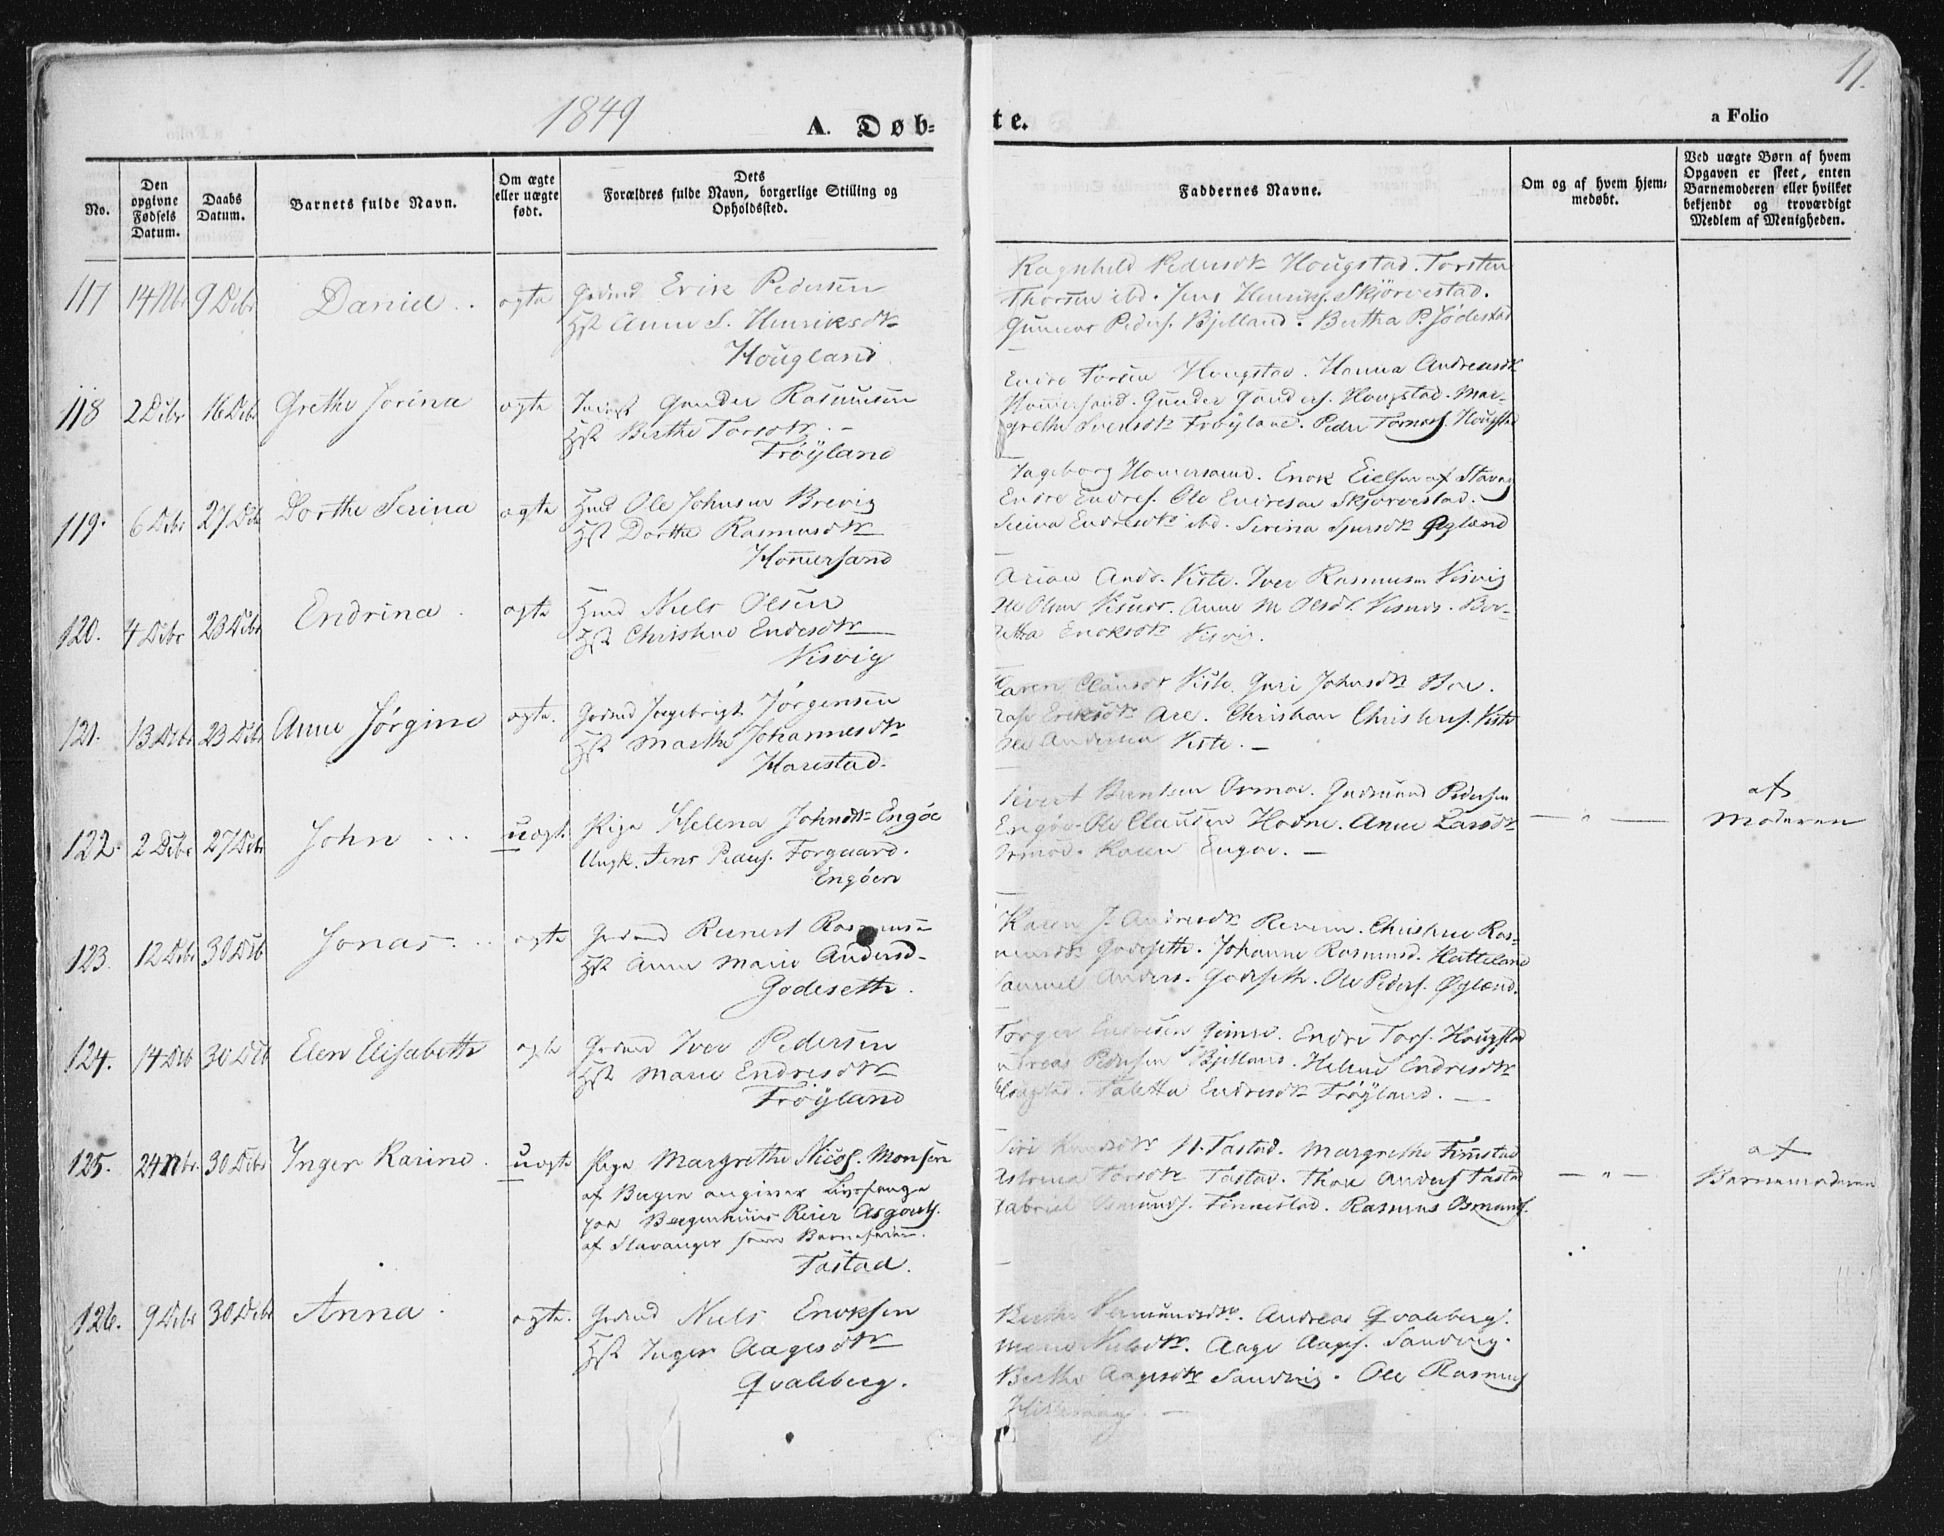 1849
A. Døb=
te.
a Folio
11.
No.
Den opgivne Fødsels Datum.
Daabs Datum.
Barnets fulde Navn.
Om ægte eller uægte født.
Dets Forældres fulde Navn, borgerlige Stilling og Opholdssted.
Faddernes Navne.
Om og af hvem hjem= medøbt.
Ved uægte Børn af hvem Opgaven er skeet, enten Barnemoderen eller hvilket bekjendt og troværdigt Medlem af Menigheden.
117 14 Nbr 9 Debr Daniel ægte Grdmd Erik Pedersen
Hst Anne S. Henriksdtr
Hougland
Ragnhild Pedersdtr Hougstad. Torsten
Thorsen ibd. Jens Henriks. Skjörvestad.
Gunnar Peders. Bjelland. Bertha P. Jödestad
118 2 Debr 16 Debr Grethe Jorina ægte Gunder Rasmusen
Hst Berthe Torsdtr
Fröÿland
Endre Torsen Hougstad. Hanna Andreasdtr
Hommersand. Gunder Gunders. Hougstad. Mar-
grethe Svensdtr Fröyland. Peder
119. 6 Debr 27 Deb Dorthe Serina ægte Hmd Ole Johnsen Brevig
Hst Dorthe Rasmusdtr
Hommersand
Ingeborg Homersand. Enok Eielsen af Stavang
Endre Endres. Ole Endresen Skjorvestad.
Serina Endresdtr ibd. Serina Sjursdtr Øgland
120. 4 Debr 23 Debr Endrina ægte Hmd Niels Olsen
Hst Christine Endresdtr
Visvig
Viste. Iver Rasmusen Visvig
Ole Olsen Visnes. Anne M. Olsdt. Visnes. Ber-
Enoksdtr Visvig.
121. 13 Debr 23 Deb Anne Jörgine ægte. Grdmd Ingebrigt Jörgensen
Hst Marthe Johannesdtr
Harestad.
Karen Clausdtr Viste. Guri Johnsdtr Boe.
Eriksdtr Are. Christian Christens. Viste
Ole Andersen Viste. —
122. 2 Debr 27 Debr John uægt. Piga Helena Johnsdtr Engöe
Ungk. Jens Peders. Forgaard.
Engöen
Sivert Bentsen Ormøe. Gudmund Pedersen
Engöe. Ole Clausen Hodne. Anne Larsdtr
Ormøe. Karen Engøe. —
— " —
af
Moderen
123. 12 Debr 30 Deb Jonas ægte Grdmd Reinert Rasmusen
Hst Anne Marie Andersd-
Godeseth.
Karen J. Andresdtr Revem. Christine Ras-
musdtr Godeseth. Johanne Rasmusd. Hatteland
Samuel Anders. Godeseth. Ole Peders. Øgland.
124. 14 Deb 30 Deb Elen Elisabeth ægte Grdmd Iver Pedersen
Hst Marie Endresdtr
Fröÿland
Torger Endresen Gimre. Endre Tors. Hougstad
Andreas Pedersen Bjelland. Helene Endresdtr
Hougstad. Taletta Endresdtr Fröÿland. —
125. 24 Nbr. 30 Debr Inger Karine. uægte Piga Margrethe Nicol. Monsen
af Bergen angiver Livsfange
paa Bergenhuus Reier Asgouts.
af Stavanger som Barnefader.
Tastad.
Siri Knudsdtr N. Tastad. Margrethe Finnestad
Torsdtr Tastad. Thore Anders Tastad
Gabriel Osmunds. Finnestad. Rasmus Osmunds.
— " —
af
Barnemoderen
126. 9 Debr 30 Debr Anna. ægte. Grdmd Niels Enoksen
Hst Inger Aagesdtr
Qvaleberg.
Berthe Andreas Qvaleberg.
Marie Nielsdtr. Aage Aages. Sandvig.
Berthe Aagesdtr Sandvig. Ole Rasmus